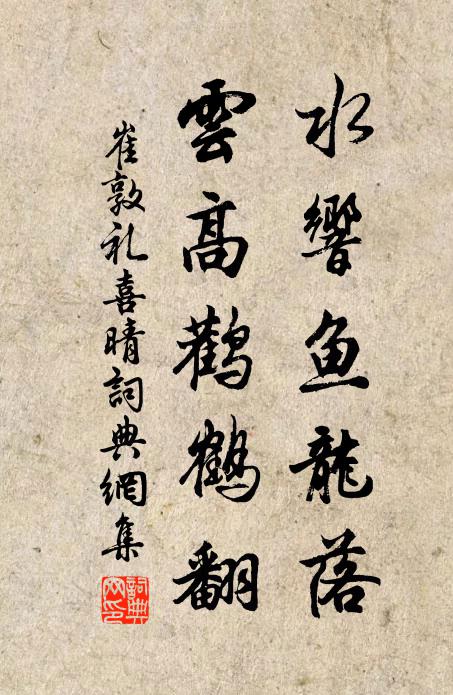 水響魚龍落
雲高鸛鶴翻
崔敦礼喜晴詞典網集
詞典